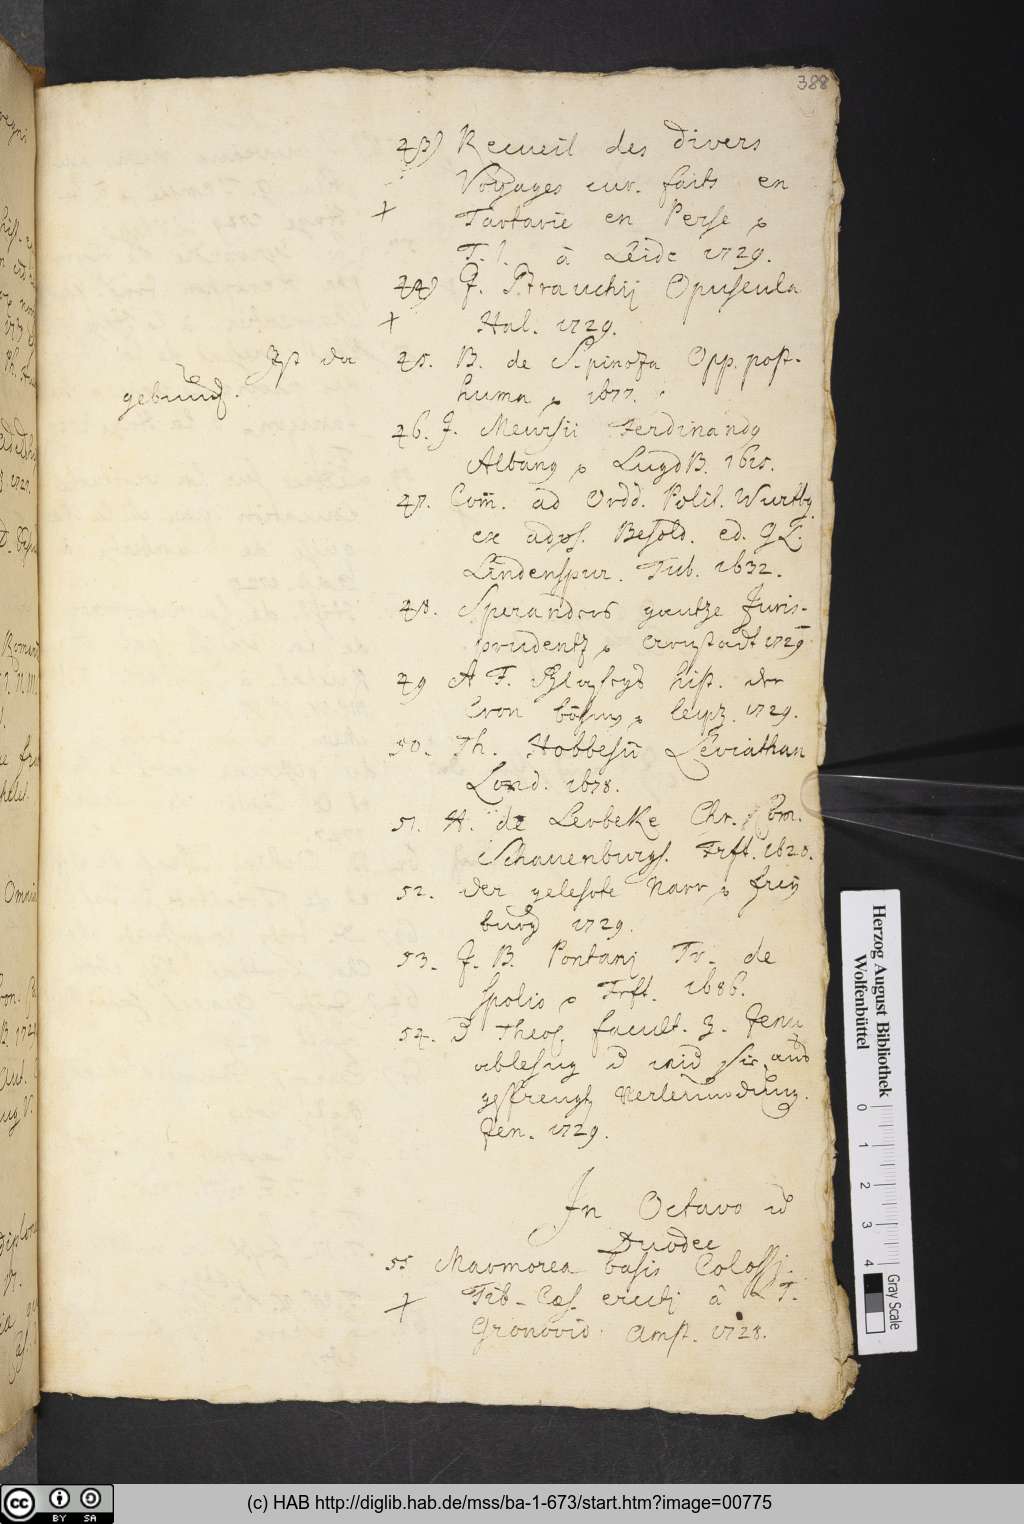 388
43) Recueil des divers
Voyages cur. faits en
+ Tartarie en Perse
T. 1. à Leide 1729.
44) J. Strauchij Opuscula
+ Hal. 1729.
Ist der
gebunden.
45. B. de Spinoza Opp. post-
huma 1677.
46. J. Meursii Ferdinandg
Albang LugdB. 1615.
47. Com. ad Ordd. Polit. Wurtbg
ex adpos. Besold. ed.
Lindenspur. Tub. 1632.
48. Sperandors gantze Juris-
prudentz Arnstadt 1729
49 A F. Glafeys hist. der
Cron böhmg leipz. 1729.
50. Th. Hobbesii Leviathan
Lond. 1678.
51. H. de Lerbeke Chr. Com.
Schauenburgs. Frft. 1620.
52. der gelehrte Narr frey
burg 1729.
53. J. B. Pontani Tr. de
Spolio Frft. 1686.
54. D Theol. facult. z. Jena
ablehng
gesprengtg Verleumdung.
Jen. 1729.
In Octavo
Duodec
55 Marmorea basis Colossj.
+ Tib. Cæs. erectj à L T.
Gronovio. Amst. 1728.
Herzog August Bibliothek
Wolfenbüttel
0 1 2 3 4
Gray Scale
CC BY SA
(c) HAB http://diglib.hab.de/mss/ba-1-673/start.htm?image=00775